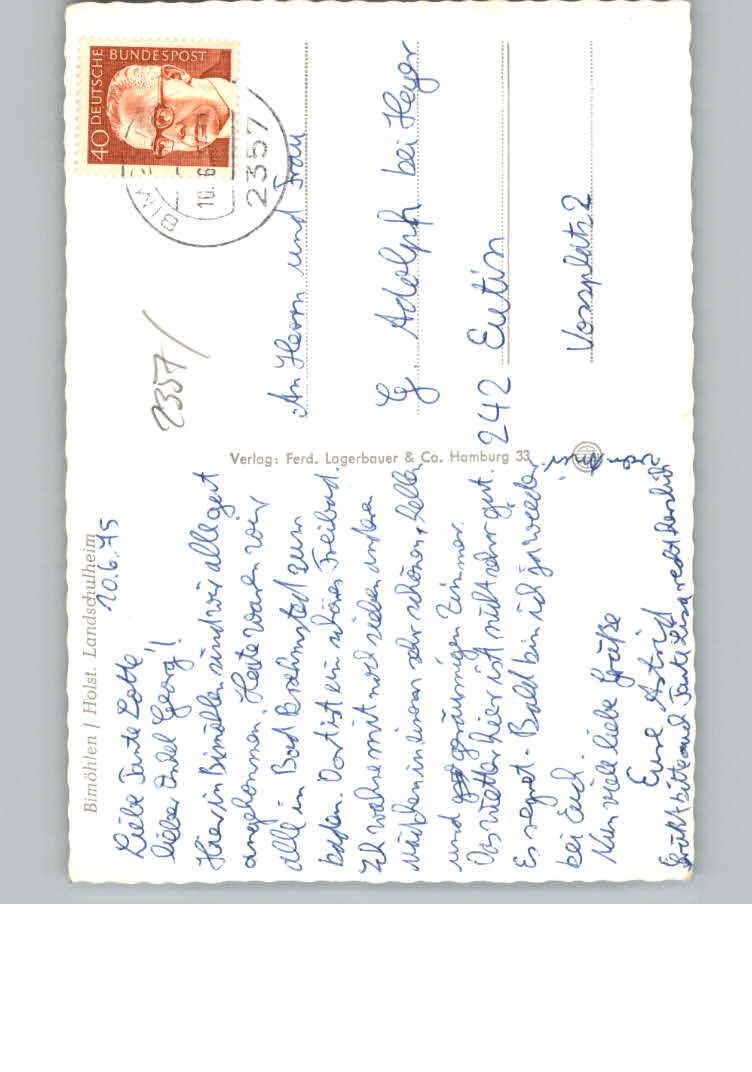 Bimöhlen / Holst. Landschulheim
10.6.75
Liebe Tante Lotte
lieber Onkel Georg!
Hier in Bimöhlen sind wir alle gut
angekommen. Heute waren wir
alle in Bad Bramstedt zum
baden. Dort ist ein schönes Freibad.
Ich wohne mit noch sieben andern
Mädchen in einem sehr schönen, hellen
und geräumigen Zimmer.
Das Wetter hier ist nicht sehr gut.
Es regnet. Bald bin ich ja wieder
bei Euch.
Nun viele liebe Grüße
Eure Astrid
Grüßt bitte auch Tante Elsa recht herzlich
von mir.
Verlag: Ferd. Lagerbauer & Co. Hamburg 33
40 DEUTSCHE BUNDESPOST
BIM
10.6
2357
2357/
An Herrn und Frau
G. Adolph bei Heyer
242 Eutin
Vossplatz 2